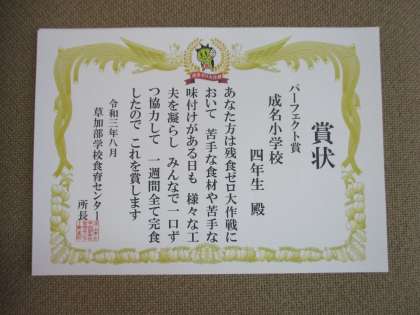 賞状
パーフェクト賞
成名小学校
四年生 殿
あなた方は残食ゼロ大作戦に
おいて 苦手な食材や苦手な
味付けがある日も 様々な工
夫を凝らし みんなで一口ず
つ協力して 一週間全て完食
したので これを賞します
令和三年八月
草加部学校食育センター
所長